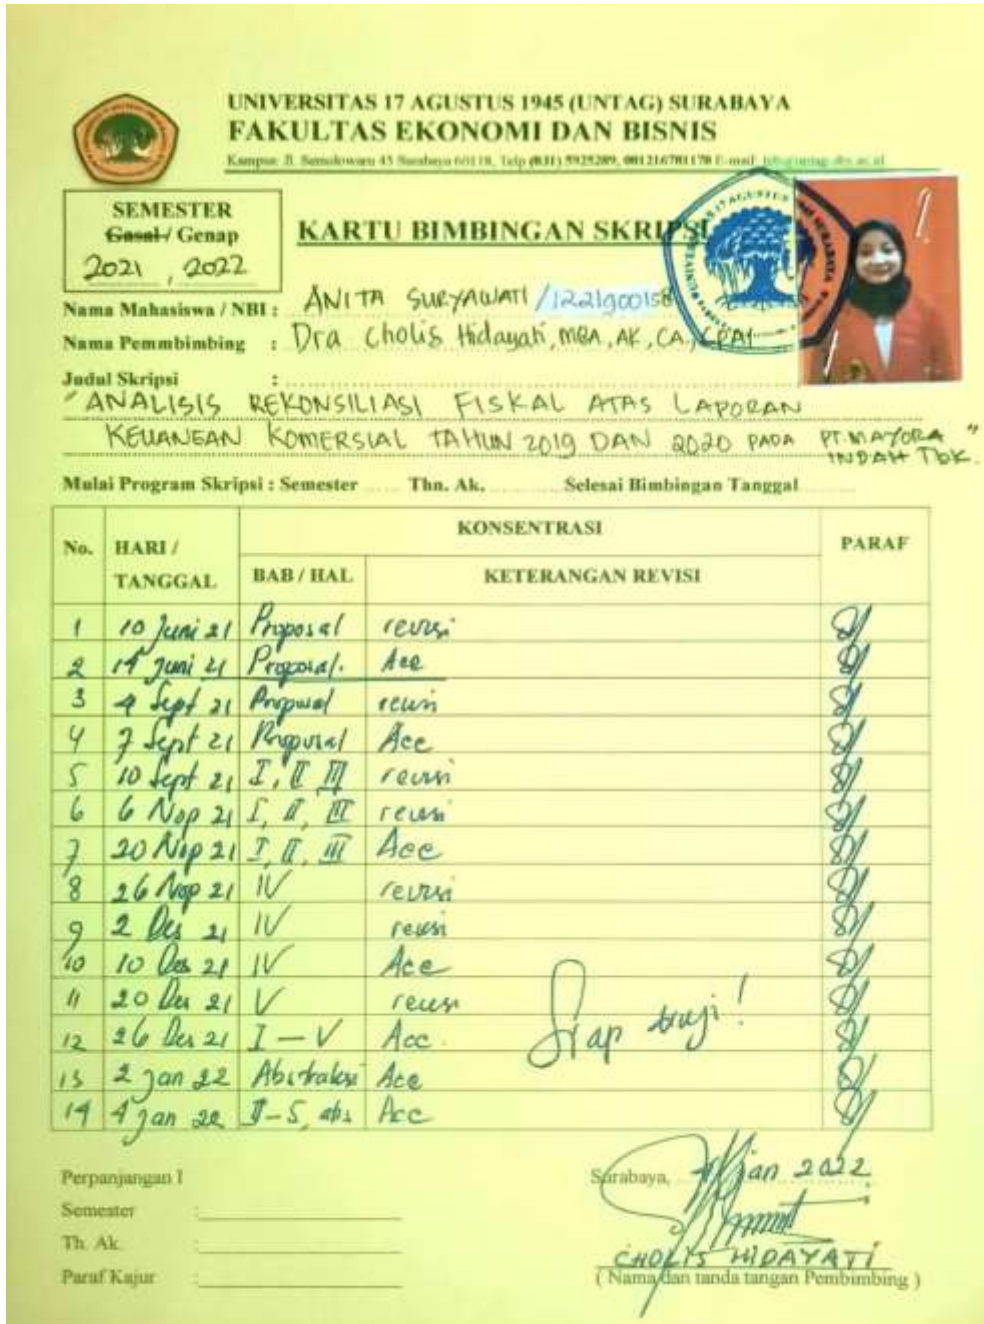 UNIVERSITAS 17 AGUSTUS 1945 (UNTAG) SURABAYA
FAKULTAS EKONOMI DAN BISNIS
Kampus: Jl. Semolowaru 45 Surabaya 60118, Telp (031) 5925289, 081216781178 E-mail:
SEMESTER
Gasal / Genap
2021, 2022
KARTU BIMBINGAN SKRIPSI
Nama Mahasiswa / NBI : ANITA SURYAWATI /1221900158
Nama Pemmbimbing : Dra Cholis Hidayati, MBA, AK, CA, CPAI
Judul Skripsi :
"ANALISIS REKONSILIASI FISKAL ATAS LAPORAN
KEUANGAN KOMERSIAL TAHUN 2019 DAN 2020 PADA PT. MAYORA "
INDAH Tbk.
Mulai Program Skripsi : Semester Thn. Ak. Selesai Bimbingan Tanggal
No. HARI / TANGGAL KONSENTRASI PARAF
BAB / HAL KETERANGAN REVISI
1 10 Juni 21 Proposal revisi
2 14 Juni 21 Proposal. Acc
3 4 Sept 21 Proposal revisi
4 7 Sept 21 Proposal Acc
5 10 Sept 21 I, II III revisi
6 6 Nop 21 I, II, III revisi
7 20 Nop 21 I, II, III Acc
8 26 Nop 21 IV revisi
9 2 Des 21 IV revisi
10 10 Des 21 IV Acc
11 20 Des 21 V revisi
12 26 Des 21 I - V Acc.
Siap uji!
13 2 Jan 22 Abstraksi Acc
14 4 Jan 22 abs Acc
Perpanjangan I
Semester :
Th. Ak. :
Paraf Kajur :
Surabaya, Jan 2022
CHOLIS HIDAYATI
( Nama dan tanda tangan Pembimbing )